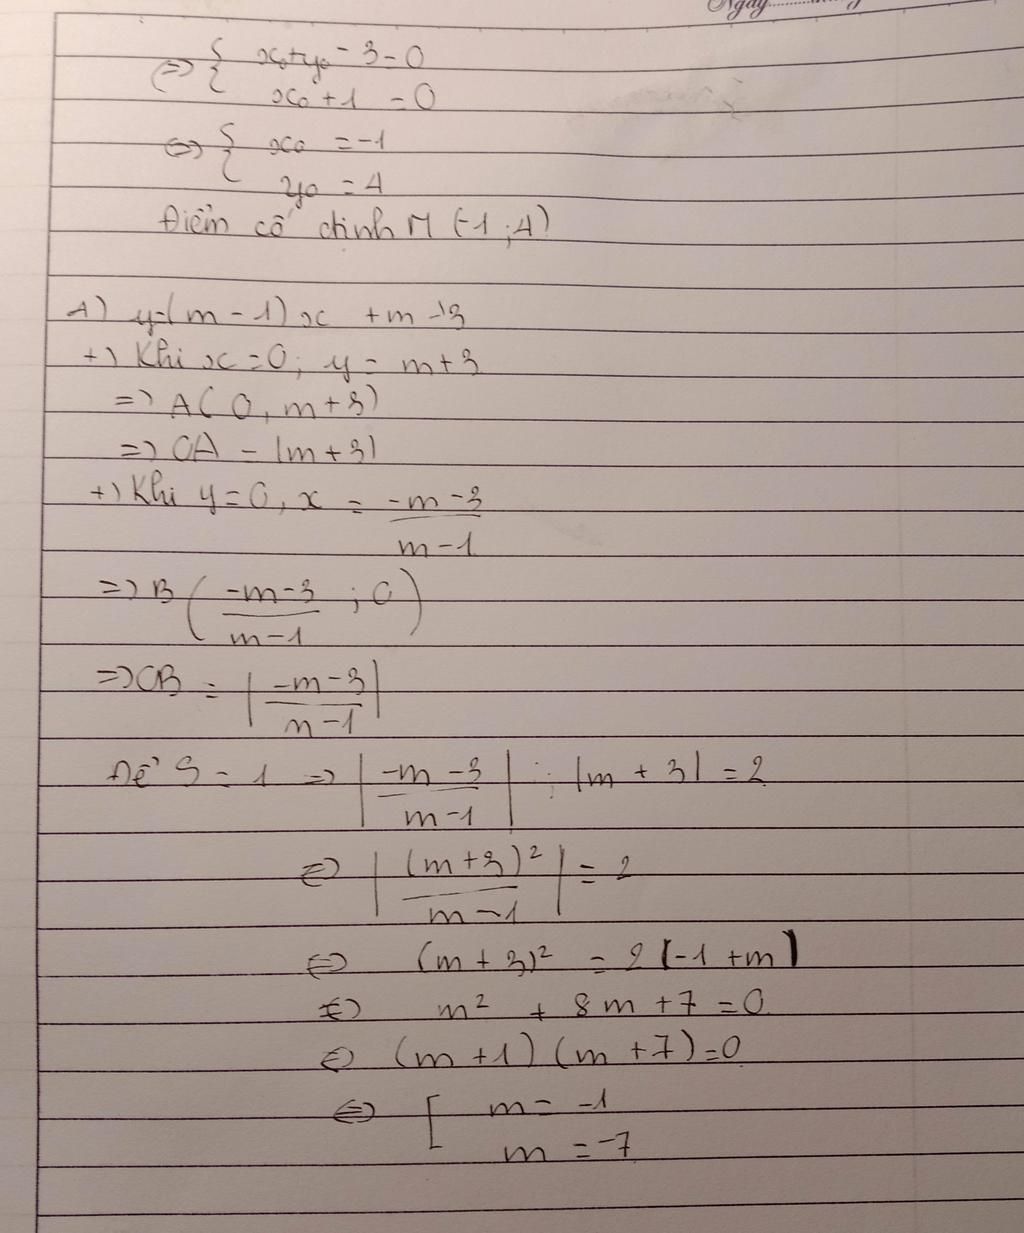 Ngày
⇔ { x₀+y₀ - 3 = 0
x₀ + 1 = 0
⇔ { x₀ = -1
y₀ = 4
Điểm cố định M (-1 ; 4)
4) y=(m - 1) x + m +3
+) Khi x = 0; y = m + 3
=> A( 0, m + 3)
=> OA = |m + 3|
+) Khi y = 0, x = \frac{-m - 3}{m - 1}
=> B ( \frac{-m - 3}{m - 1} ; 0 )
=> OB = | \frac{-m - 3}{m - 1} |
Để S = 1 => | \frac{-m - 3}{m - 1} | . |m + 3| = 2
⇔ | \frac{(m + 3)²}{m - 1} | = 2
⇔ (m + 3)² = 2 |-1 + m|
⇔ m² + 8m + 7 = 0
⇔ (m + 1) (m + 7) = 0
⇔ [ m = -1
m = -7